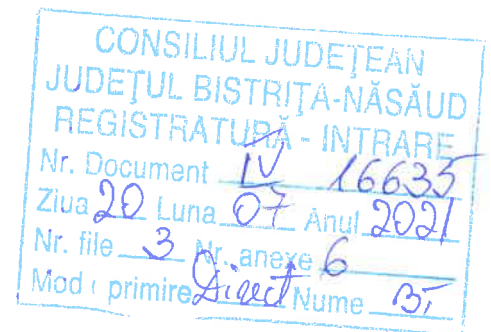 CONSILIUL JUDEȚEAN
JUDEȚUL BISTRIȚA-NĂSĂUD
REGISTRATURĂ - INTRARE
Nr. Document IV 16635
Ziua 20 Luna 07 Anul 2021
Nr. file 3 Nr. anexe 6
Mod primire Direct Nume